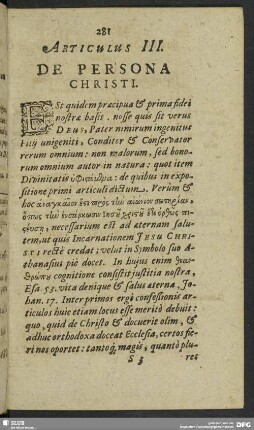 281
ARTICULUS III.
DE PERSONA
CHRISTI.
ESt quidem præcipua & prima fidei
nostræ basis, nosse quis sit verus
DEUS, Pater nimirum ingenitus
Filij unigeniti, Conditor & Conservator
rerum omnium: non malorum, sed bono-
rum omnium autor in natura: quot item
Divinitatis ὑφιστάμδρα: de quibus in expo-
sitione primi articuli dictum. Verùm &
necessarium est ad æternam salu-
tem, ut quis Incarnationem JESU CHRI-
STI rectè credat; velut in Symbolo suo A-
thanasius piè docet. In hujus enim
cognitione consistit justitia nostra,
Esa. 53. vita denique & salus æterna, Jo-
han. 17. Inter primos ergò confessionis ar-
ticulos huic etiam locus esse meritò debuit:
quo, quid de Christo & docuerit olim, &
adhuc orthodoxa doceat Ecclesia, certos fie-
ri nos oportet: tantoq́; magis, quantò plu-
S 3 ret
SLUB
DFG